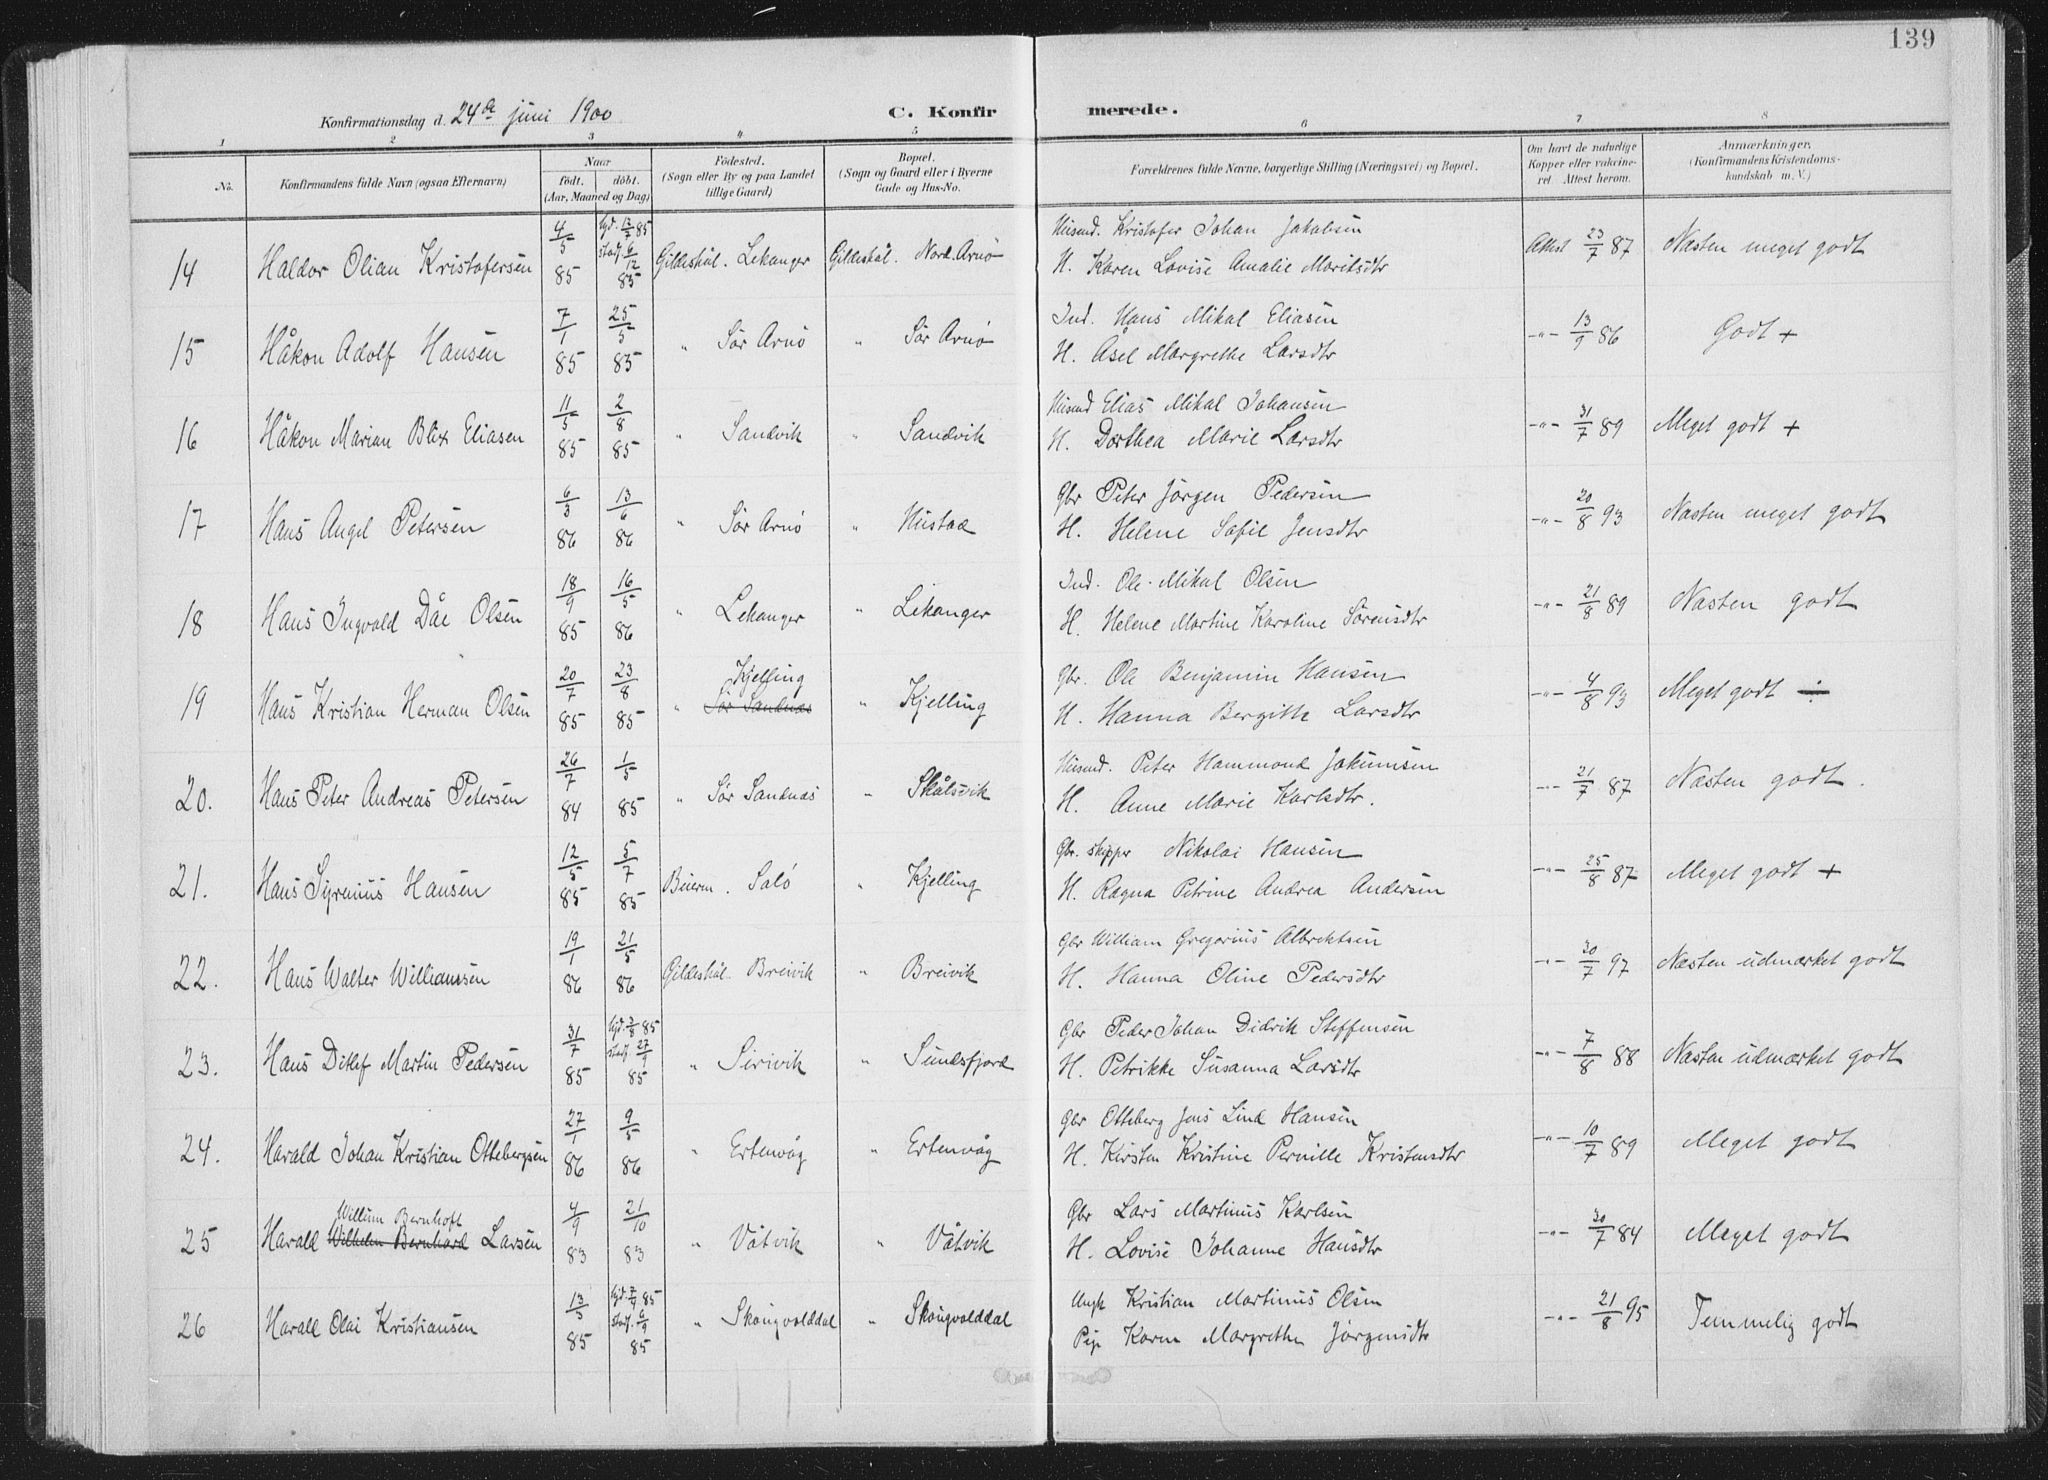 139
Konfirmationsdag d. 24de juni 1900
C. Konfirmerede.
1 2 3 4 5 6 7 8
No.
Konfirmandens fulde Navn (ogsaa Efternavn)
Naar
født. døbt.
(Aar, Maaned og Dag)
Fødested.
(Sogn eller By og paa Landet
tillige Gaard)
Bopæl.
(Sogn og Gaard eller i Byerne
Gade og Hus-No.
Forældrenes fulde Navne, borgerlige Stilling (Næringsvei) og Bopæl.
Om havt de naturlige
Kopper eller vaccine-
ret. Attest herom.
Anmærkninger.
(Konfirmandens Kristendoms-
kundskab m. V.)
14 Haldor Olian Kristofersen 4/5 85 hjd. 13/7 85 stadf. 6/12 85 Gildeskål. Lekanger Gildeskål. Nord. Arnø
Husmd. Kristofer Johan Jakobsen
H. Karen Lovise Amalie Moritsdtr
Attest 23/7 87 Næsten meget godt
15 Håkon Adolf Hansen 7/1 85 25/5 85 " Sør Arnø " Sør Arnø
Ind. Hans Mikal Eliasen
H. Åsel Margrethe Larsdtr
-"- 13/9 86 Godt +
16 Håkon Marian Blix Eliasen 11/5 85 2/8 85 " Sandvik " Sandvik
Husmd Elias Mikal Johansen
H. Dorthea Marie Larsdtr
-"- 31/7 89 Meget godt +
17 Hans Angel Petersen 6/3 86 13/6 86 " Sør Arnø " Hustad
Gbr Peter Jørgen Pedersen
H. Helene Sofie Jensdtr
-"- 20/8 93 Næsten meget godt
18 Hans Ingvald Dåe Olsen 18/9 85 16/5 86 " Lekanger " Lekanger
Ind. Ole Mikal Olsen
H. Helene Martine Karoline Sørensdtr
-"- 21/8 89 Næsten godt
19 Hans Kristian Herman Olsen 20/7 85 23/8 85 " Kjelling Sør Sandnæs " Kjelling
Gbr. Ole Benjamin Hansen
H. Hanna Bergitte Larsdtr
-"- 4/8 93 Meget godt ÷
20. Hans Peter Andreas Petersen 26/7 84 1/5 85 " Sør Sandnæs " Skålsvik
Husmd. Peter Hammond Jakumsen
H. Anne Marie Karlsdtr.
-"- 21/7 87 Næsten godt.
21. Hans Sigrenius Hansen 12/5 85 5/7 85 Beiern. Salø " Kjelling
Gbr. skipper Nikolai Hansen
H. Ragna Petrine Andrea Andersen
-"- 25/8 87 Meget godt +
22. Hans Walter Williamssen 19/1 86 21/5 86 Gildeskål. Breivik " Breivik
Gbr William Gregorius Albrektsen
H. Hanna Oline Pedersdtr
-"- 30/7 97 Næsten udmærket godt
23. Hans Ditlef Martin Pedersen 31/7 85 hjd. 3/8 85 stadf. 27/9 85 " Sirivik " Sundsfjord
Gbr Peder Johan Didrik Steffensen
H. Petrikke Susanna Larsdtr
-"- 7/8 88 Næsten udmærket godt
24. Harald Johan Kristian Ottebergsen 27/1 86 9/5 86 " Ertenvåg " Ertenvåg
Gbr Otteberg Jens Lind Hansen
H. Kirsten Kristine Pernille Kristensdtr
-"- 10/7 89 Meget godt
25 Harald Willum Bernhoft Wilhelm Bernhard Larsen 4/9 83 21/10 83 " Våtvik " Våtvik
Gbr Lars Martinus Karlsen
H. Lovise Johanne Hansdtr
-"- 30/7 84 Meget godt
26 Harald Olai Kristiansen 13/5 85 hjd. 7/7 85 stadf. 6/9 85 " Skougvolddal " Skougvolddal
Ungk Kristian Martinus Olsen
Pige Karen Margrethe Jørgensdtr
-"- 21/8 95 Temmelig godt